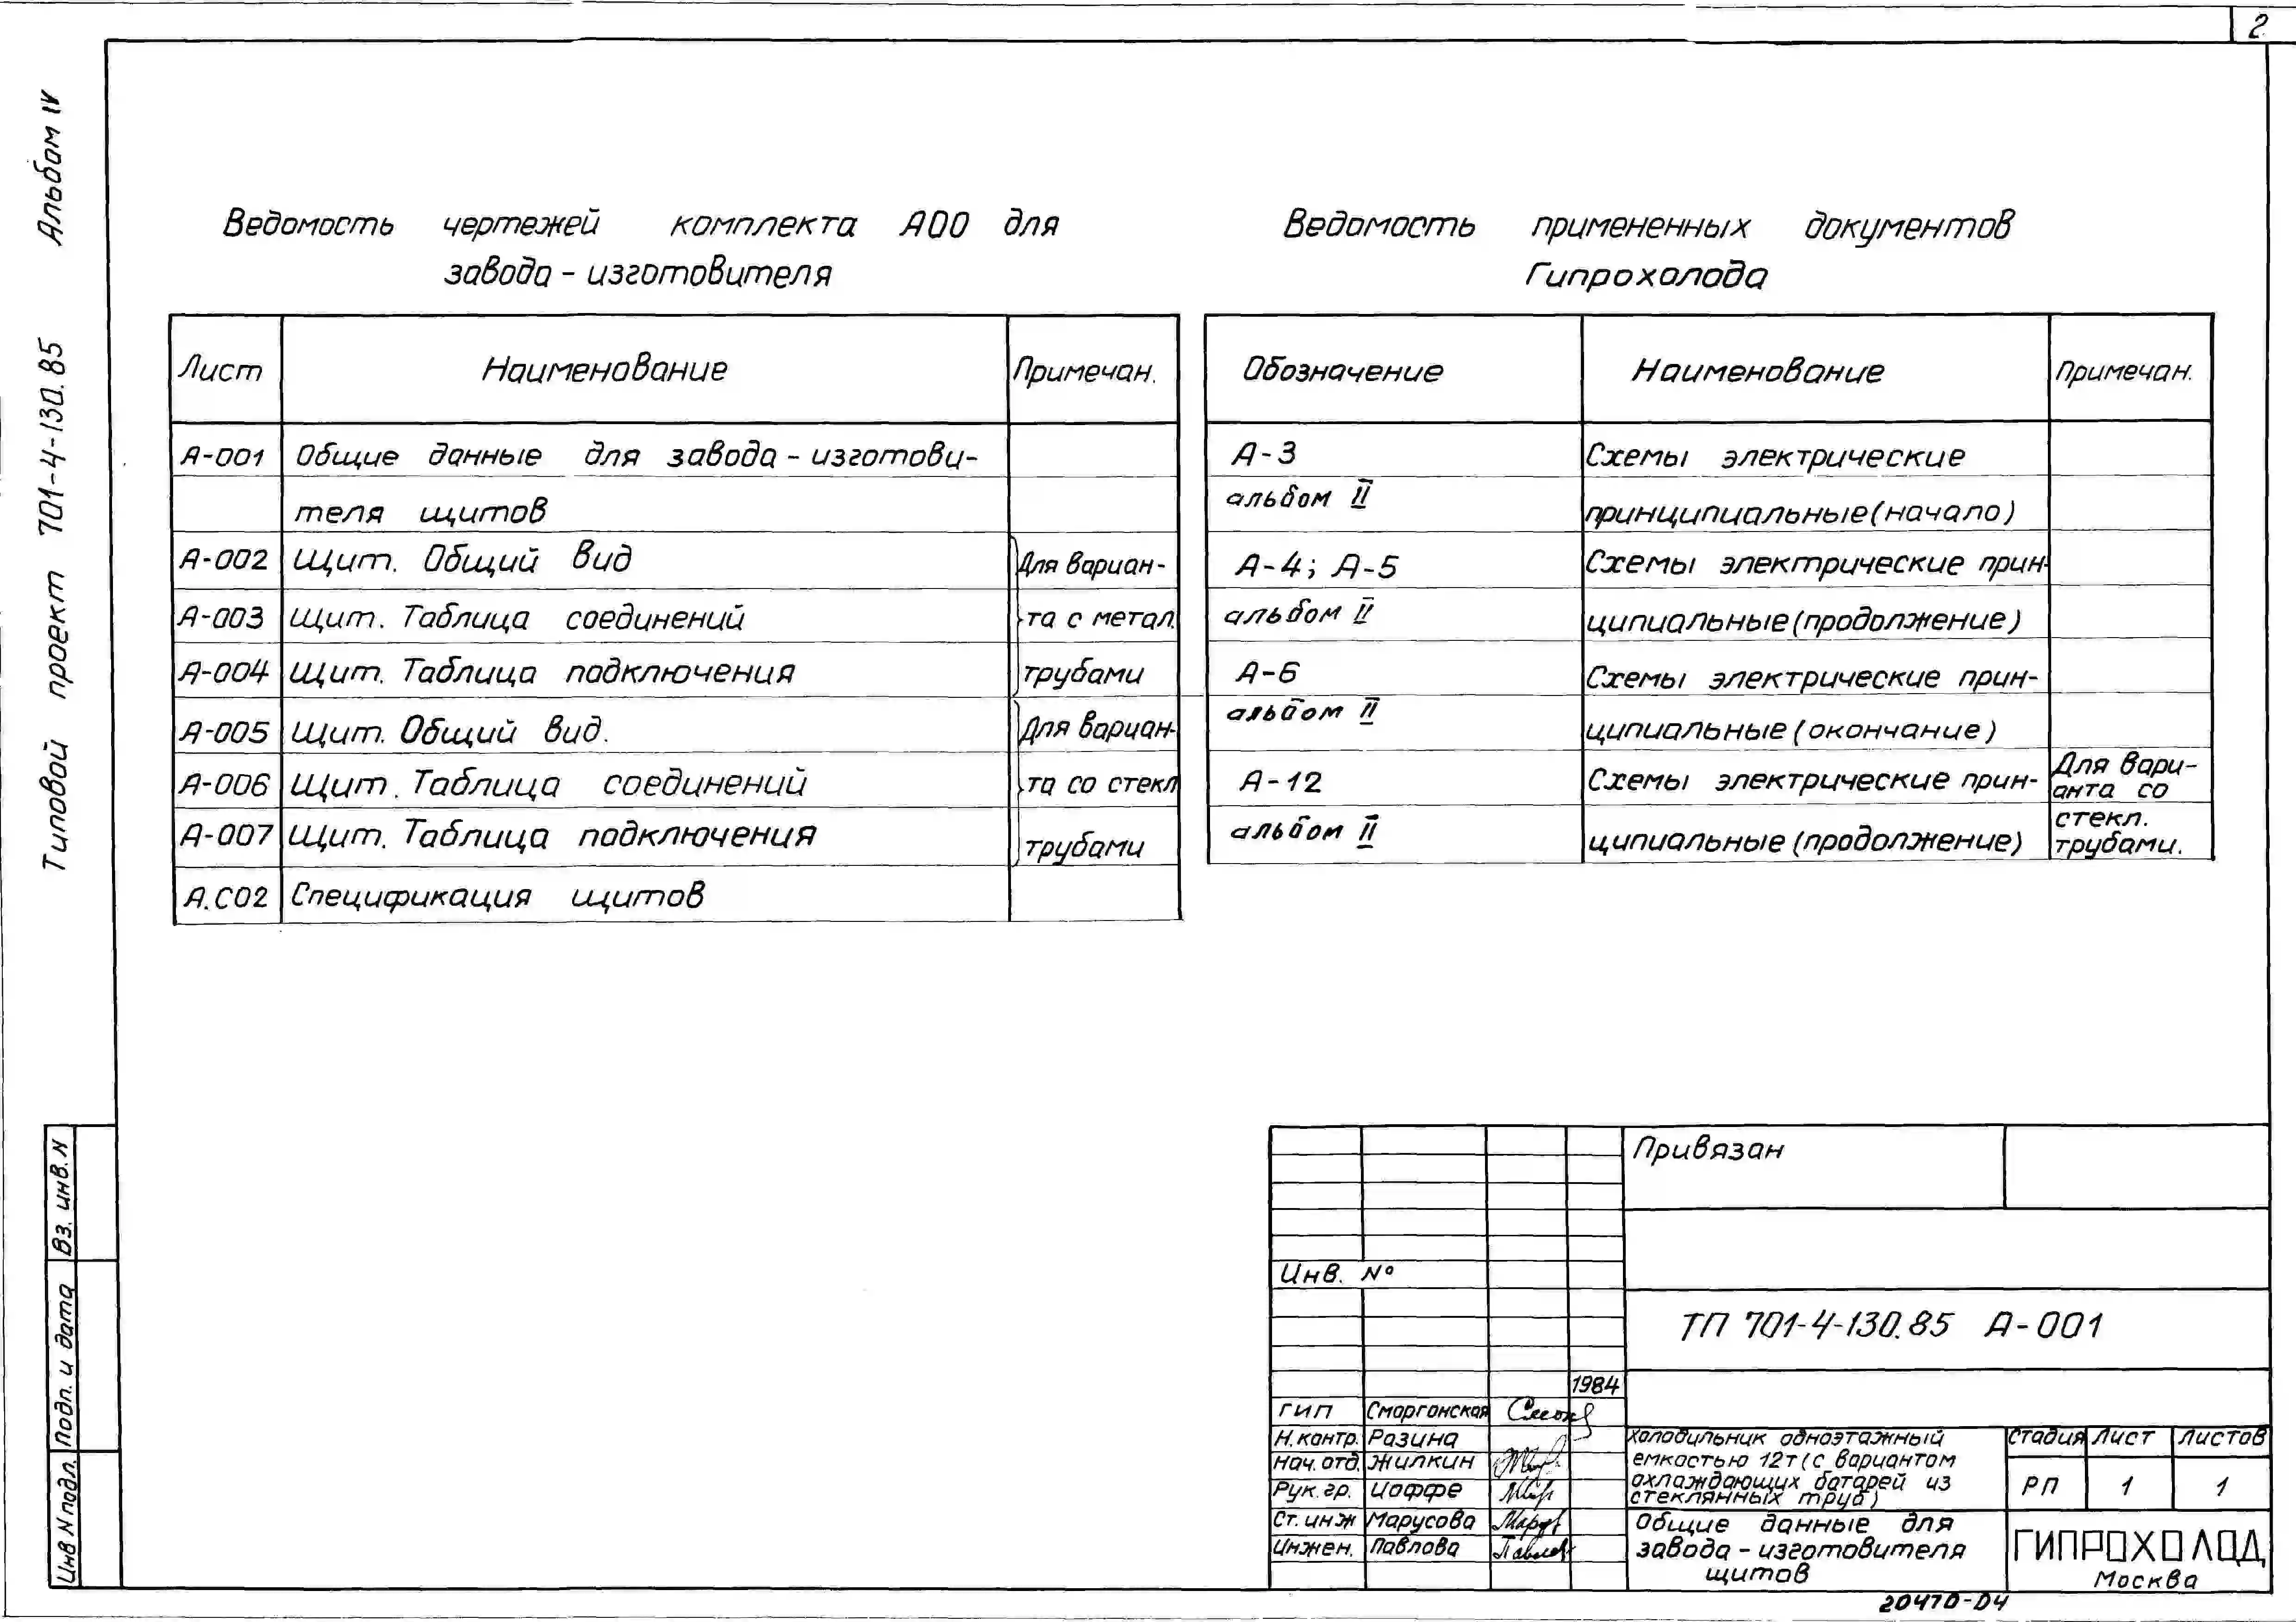 2
Альбом IV
Типовой проект 701-4-130.85
Ведомость чертежей комплекта А00 для
завода - изготовителя
Лист Наименование Примечан.
А-001 Общие данные для завода - изготови-
теля щитов
А-002 Щит. Общий вид Для вариан-
А-003 Щит. Таблица соединений та с метал.
А-004 Щит. Таблица подключения трубами
А-005 Щит. Общий вид. Для вариан-
А-006 Щит. Таблица соединений та со стекл
А-007 Щит. Таблица подключения трубами
А.С02 Спецификация щитов
Ведомость примененных документов
Гипрохолода
Обозначение Наименование Примечан.
А-3 Схемы электрические
альбом II принципиальные (начало)
А-4; А-5 Схемы электрические прин-
альбом II ципиальные (продолжение)
А-6 Схемы электрические прин-
альбом II ципиальные (окончание)
А-12 Схемы электрические прин- Для вари-
анта со
альбом II ципиальные (продолжение) стекл.
трубами.
Вз. инв. N
Подп. и дата
Инв N подл.
Привязан
Инв. №
ТП 701-4-130.85 А-001
1984
ГИП Сморгонская
Н.контр. Разина
Нач. отд. Жилкин
Рук. гр. Иоффе
Ст. инж Марусова
Инжен. Павлова
Холодильник одноэтажный
емкостью 12т (с вариантом
охлаждающих батарей из
стеклянных труб)
Стадия Лист Листов
РП 1 1
Общие данные для
завода - изготовителя
щитов
ГИПРОХОЛОД
Москва
20470-04